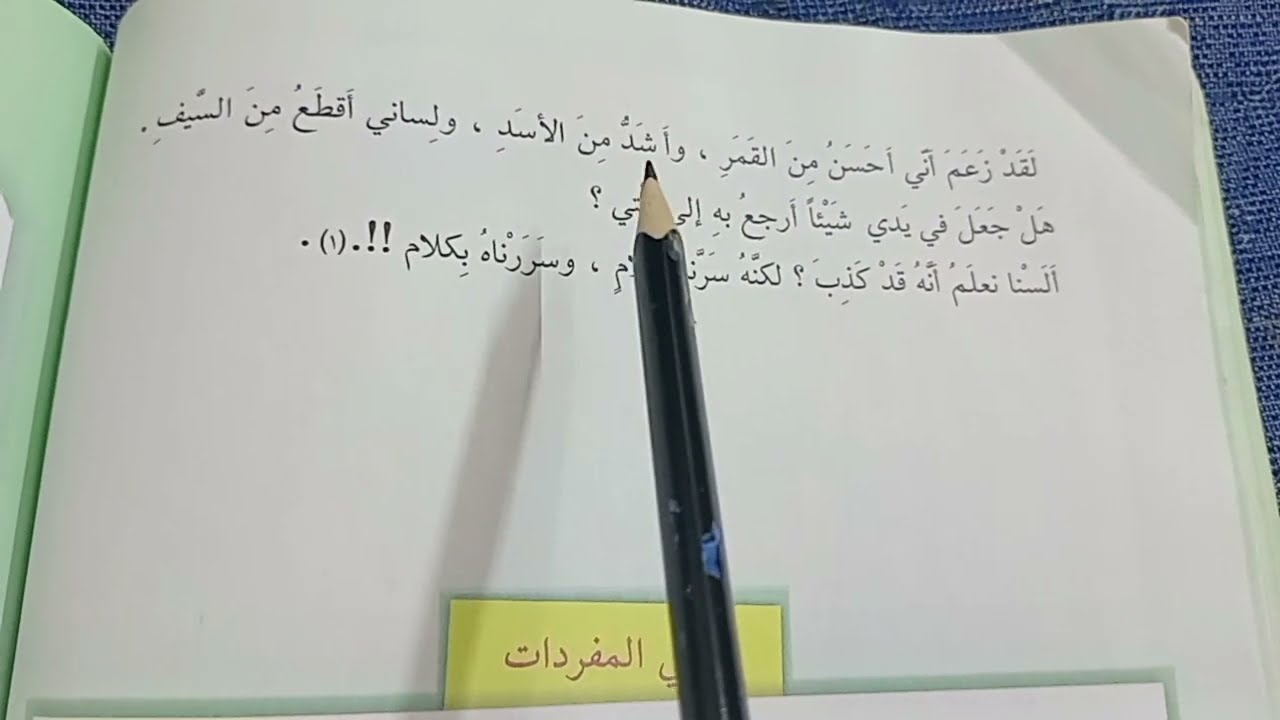 لَقَدْ زَعَمَ أَنّي أَحَسَنُ مِنَ القَمَرِ ، وأَشَدُّ مِنَ الأسَدِ ، ولِساني أَقطَعُ مِنَ السَّيفِ .
هَلْ جَعَلَ في يَدي شَيْئاً أَرجعُ بهِ إلى ؟
أَلَسْنا نعلَمُ أنَّهُ قَدْ كَذِبَ ؟ لكنَّهُ ، وسَرَرْناهُ بِكلام !!.(١) .
المفردات